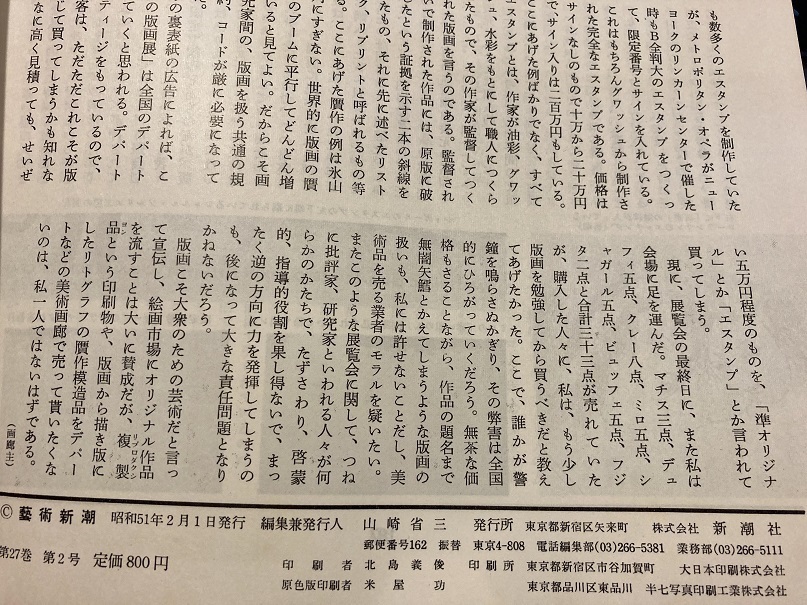 も数多くのエスタンプを制作していた
が、メトロポリタン・オペラがニュー
ヨークのリンカーンセンターで催した
時もB全判大のエスタンプをつくっ
て、限定番号とサインを入れている。
これはもちろんグワッシュから制作さ
れた完全なエスタンプである。価格は
サインなしのもので十万から二十万円
で、サイン入りは二百万円もしている。
ここにあげた例ばかりでなく、すべて
エスタンプとは、作家が油彩、グワッ
シュ、水彩をもとにして職人につくら
たもので、その作家が監督してつく
れた版画を言うのである。監督され
いで制作された作品には、原版に破
したという証拠を示す二本の斜線を
たもの、それに先に述べたリスト
ク、リプリントと呼ばれるもの等
る。ここにあげた贋作の例は氷山
にすぎない。世界的に版画の贋
のブームに平行してどんどん増
いると見てよい。だからこそ画
究家間の、版画を扱う共通の規
、コードが厳に必要になって
。
の裏表紙の広告によれば、こ
の版画展」は全国のデパート
ていくと思われる。デパート
ティージをもっているので、
客は、ただただこれこそが版
じて買ってしまうかも知れな
なに高く見積っても、せいぜ
い五万円程度のものを、「準オリジナ
ル」とか「エスタンプ」とか言われて
買ってしまう。
現に、展覧会の最終日に、また私は
会場に足を運んだ。マチス三点、デュ
フィ五点、クレー八点、ミロ五点、シ
ャガール五点、ビュッフェ五点、フジ
タ二点と合計三十三点が売れていた
が、購入した人々に、私は、もう少し
版画を勉強してから買うべきだと教え
てあげたかった。ここで、誰かが警
鐘を鳴らさぬかぎり、その弊害は全国
的にひろがっていくだろう。無茶な価
格もさることながら、作品の題名まで
無闇矢鱈とかえてしまうような版画の
扱いも、私には許せないことだし、美
術品を売る業者のモラルを疑いたい。
またこのような展覧会に関して、つね
に批評家、研究家といわれる人々が何
らかのかたちで、たずさわり、啓蒙
的、指導的役割を果し得ないで、まっ
たく逆の方向に力を発揮してしまうの
も、後になって大きな責任問題となり
かねないだろう。
版画こそ大衆のための芸術だと言っ
て宣伝し、絵画市場にオリジナル作品
を流すことは大いに賛成だが、複製リプロダクシ
品ヨンという印刷物や、版画から描き版に
したリトグラフの贋作模造品をデパー
トなどの美術画廊で売って貰いたくな
いのは、私一人ではないはずである。
（画廊主）
© 藝術新潮 昭和51年2月1日発行 編集兼発行人 山崎省三 発行所 東京都新宿区矢来町 株式会社 新潮社
郵便番号162 振替 東京4-808 電話編集部(03)266-5381 業務部(03)266-5111
第27巻 第2号 定価800円 印刷者 北島義俊 印刷所 東京都新宿区市谷加賀町 大日本印刷株式会社
原色版印刷者 米屋功 東京都品川区東品川 半七写真印刷工業株式会社